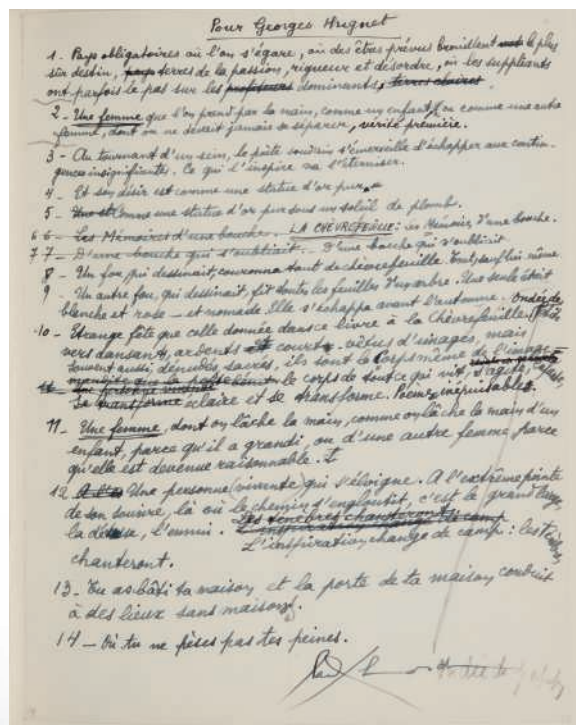 Pour Georges Hugnet
1 - Pays obligatoires où l'on s'égare, où des êtres prévus brouillent le plus
sûr destin, pays terres de la passion, rigueur et désordre, où les suppliants
ont parfois le pas sur les dominants, terres claires
2 - Une femme que l'on prend par la main, comme un enfant, ou comme une autre
femme, dont on ne devait jamais se séparer, vérité première.
3 - Au tournant d'un sein, le poète soudain s'émerveille d'échapper aux contin-
gences insignifiantes. Ce qui l'inspire va l'éterniser.
4 - Et son désir est comme une statue d'or pur,
5 - Comme une statue d'or pur sous un soleil de plomb.
6 6 - Les Mémoires d'une bouche. LA CHÈVREFEUILLE : les Mémoires d'une bouche.
7 7 - D'une bouche qui s'oubliait. - D'une bouche qui s'oubliait
8 - Un fou, qui dessinait, couronna tout de chèvrefeuille. Tout, sauf lui-même
9 - Un autre fou, qui dessinait, fit toutes les feuilles d'un arbre. Une seule était
blanche et rose - et nomade. Elle s'échappa avant l'automne. Ondée de
10 - Etrange fête que celle donnée dans ce livre à la Chèvrefeuille.
vers dansants, ardents et courts, vêtus d'images, mais
souvent aussi, dénudés, sacrés, ils sont le corps même de l'image
le corps de tout ce qui vit, s'agite,
Se transforme éclaire et se transforme. Poème inépuisable.
11 - Une femme, dont on lâche la main, comme on lâche la main d'un
enfant, parce qu'il a grandi, ou d'une autre femme, parce
qu'elle est devenue raisonnable.
12 Une personne (vivante) qui s'éloigne. A l'extrême pointe
de son sourire, là où le chemin s'engloutit, c'est le grand large,
la l'ennui. Les ténèbres chanteront
L'inspiration change de camp : les ténèbres
chanteront.
13 - Tu as bâti ta maison et la porte de ta maison conduit
à des lieux sans maisons.
14 - Où tu ne pèses pas tes peines.